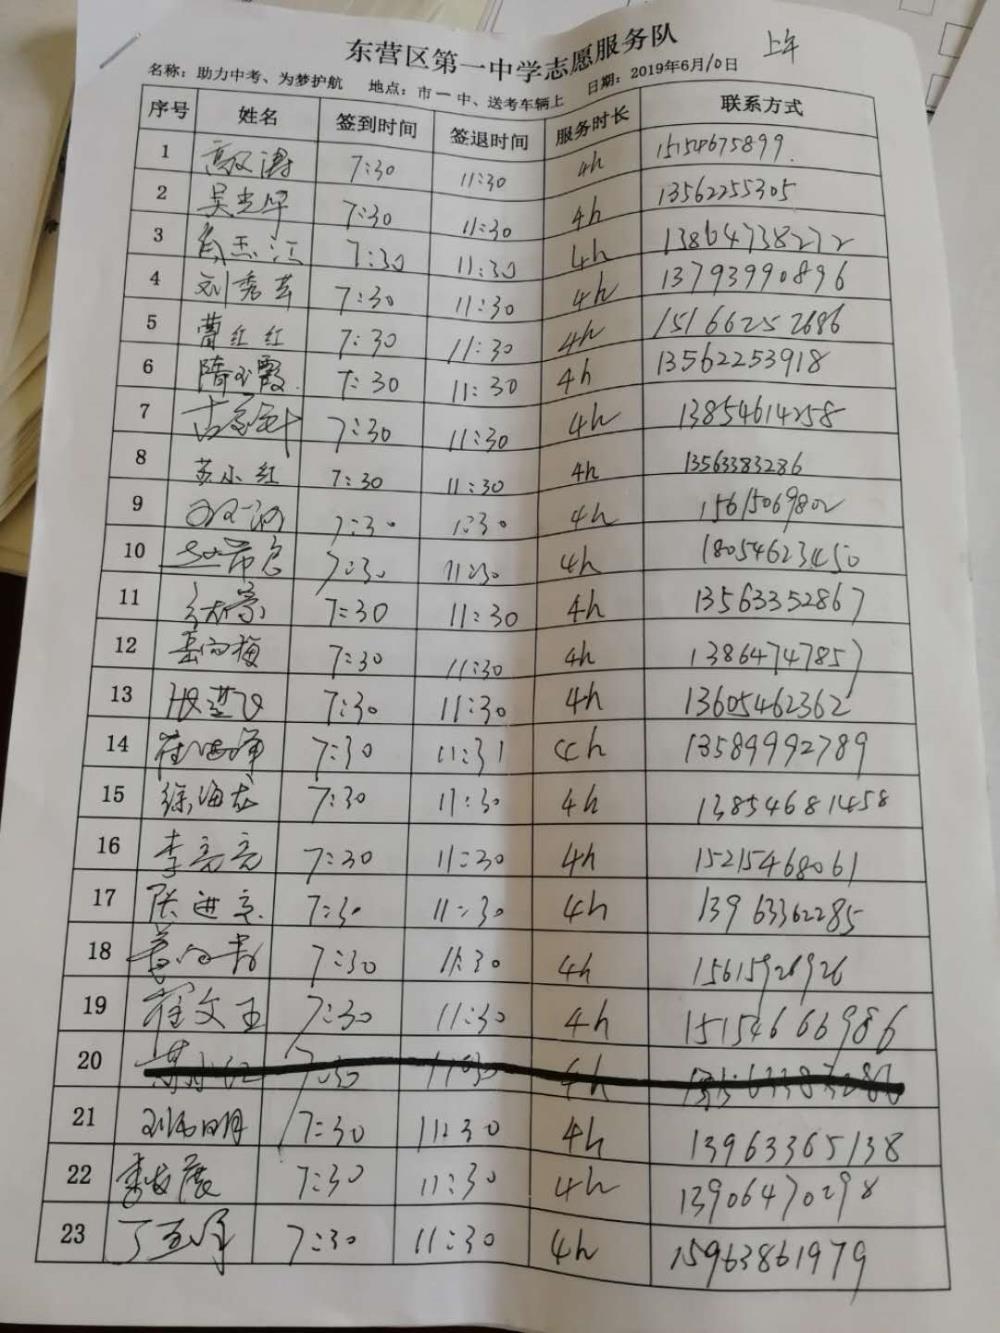 东营区第一中学志愿服务队 上午
名称：助力中考、为梦护航 地点：市一中、送考车辆上 日期：2019年6月10日
序号 姓名 签到时间 签退时间 服务时长 联系方式
1 7:30 11:30 4h
2 7:30 11:30 4h 13562255305
3 7:30 11:30 4h 13864738272
4 刘秀英 7:30 11:30 4h 13793990896
5 曹红红 7:30 11:30 4h 15166252686
6 隋小霞 7:30 11:30 4h 13562253918
7 7:30 11:30 4h 13854614258
8 苏小红 7:30 11:30 4h 13563383286
9 7:30 11:30 4h 15615069802
10 7:30 11:30 4h 18054623450
11 7:30 11:30 4h 13563352867
12 7:30 11:30 4h 13864747857
13 7:30 11:30 4h 13605462362
14 7:30 11:31 13589992789
15 徐海龙 7:30 11:30 4h 13854681458
16 李亮亮 7:30 11:30 4h 15215468061
17 张进京 7:30 11:30 4h 13963362285
18 7:30 11:30 4h 15615926926
19 崔文玉 7:30 11:30 4h 15154666986
20 7:30 11:30 4h
21 7:30 11:30 4h 13963365138
22 7:30 11:30 4h 13906470298
23 7:30 11:30 4h 15963861979